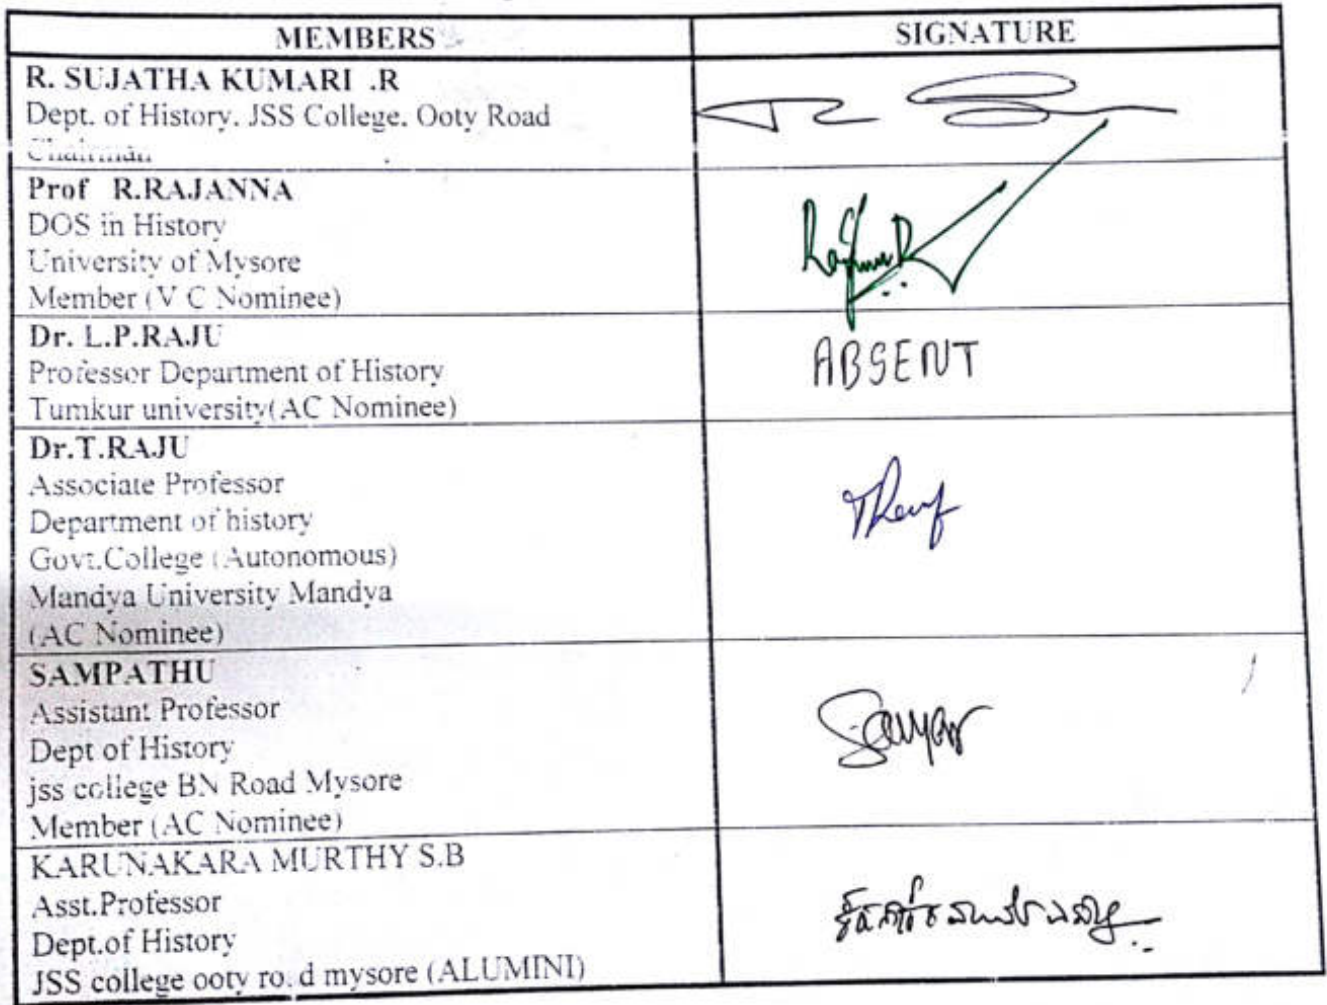 MEMBERS SIGNATURE
R. SUJATHA KUMARI .R
Dept. of History. JSS College. Ooty Road
Chairman
Prof R.RAJANNA
DOS in History
University of Mysore
Member (V C Nominee)
Dr. L.P.RAJU
ABSENT
Professor Department of History
Tumkur university(AC Nominee)
Dr.T.RAJU
Associate Professor
Department of history
Govt.College (Autonomous)
Mandya University Mandya
(AC Nominee)
SAMPATHU
Assistant Professor
Dept of History
jss college BN Road Mysore
Member (AC Nominee)
KARUNAKARA MURTHY S.B
Asst.Professor
Dept.of History
JSS college ooty ro.d mysore (ALUMINI)